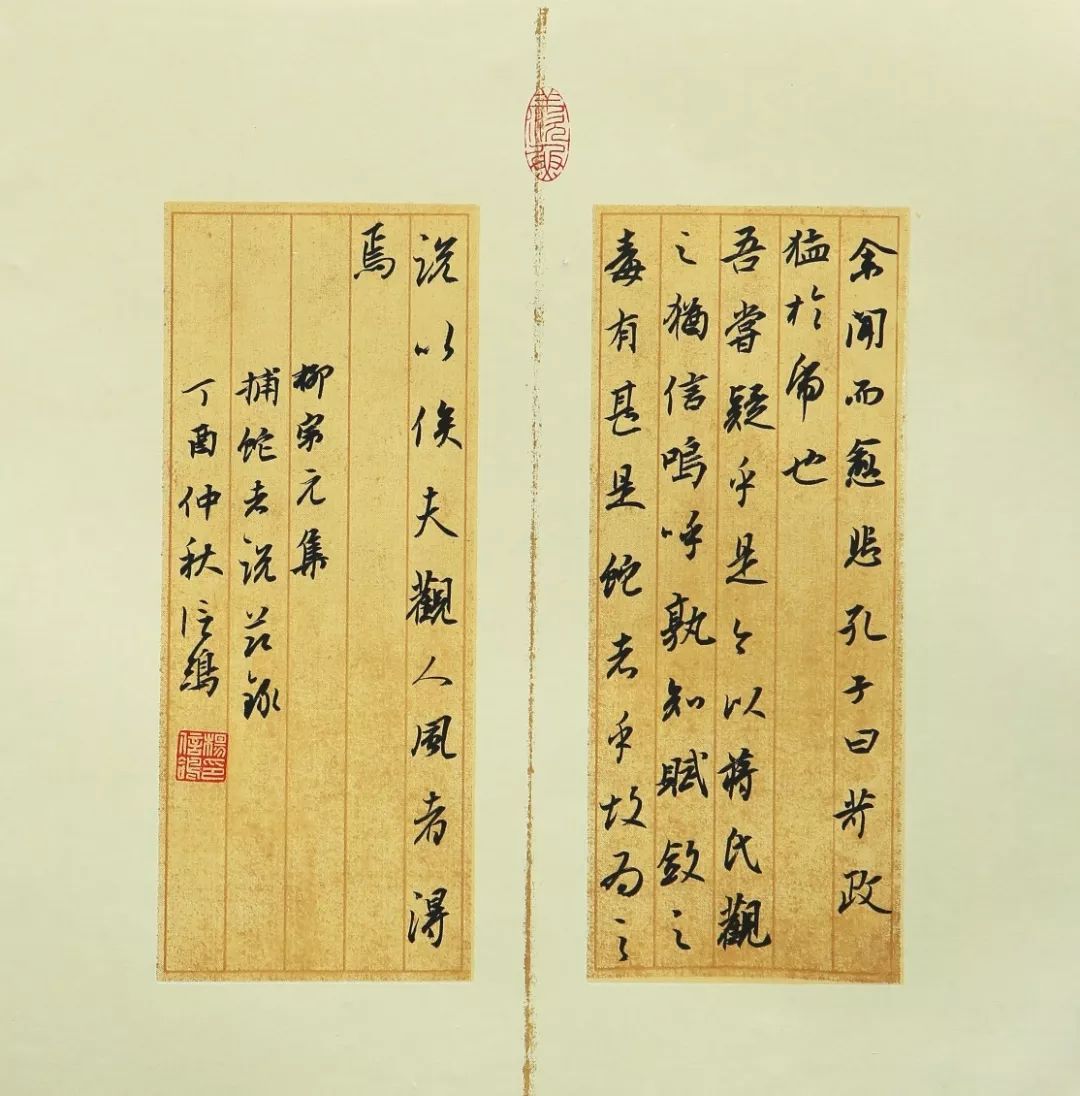 余聞而愈悲孔子曰苛政
猛於虎也
吾嘗疑乎是今以蔣氏觀
之猶信嗚呼孰知賦斂之
毒有甚是蛇者乎故為之
說以俟夫觀人風者得
焉
柳宗元集
捕蛇者說节錄
丁酉仲秋信鴻
楊印信鴻